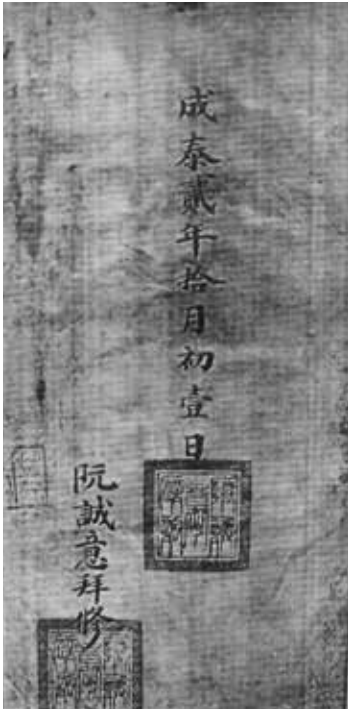 成泰貳年拾月初壹日
阮誠意拜修